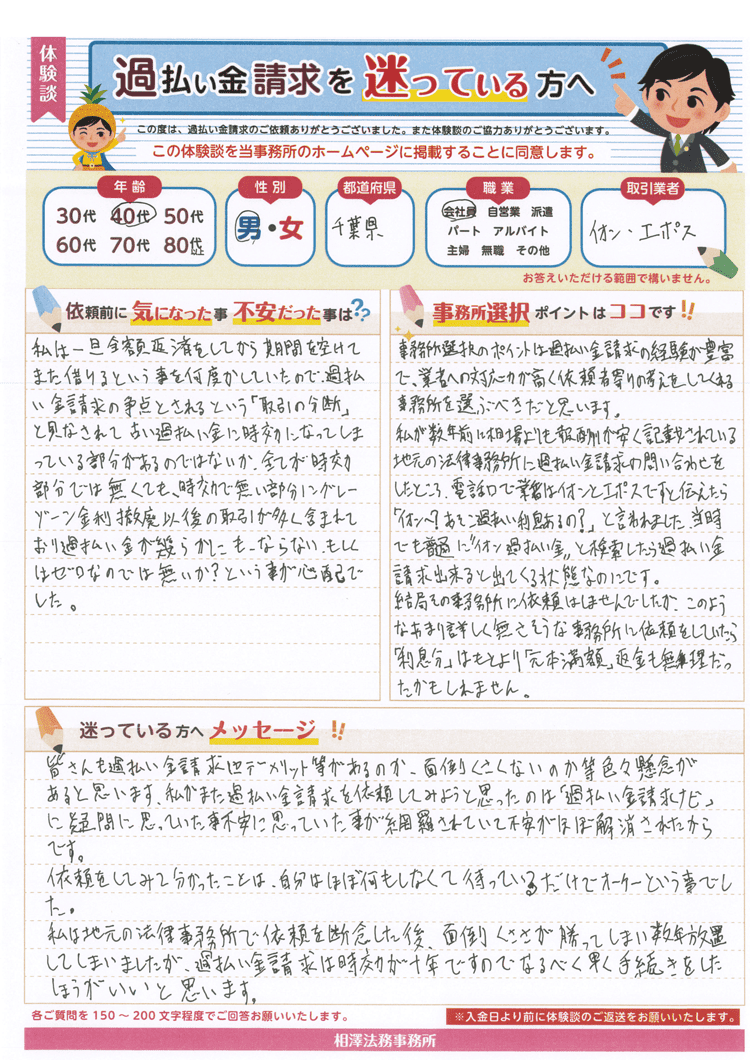 体験談
過払い金請求を迷っている方へ
この度は、過払い金請求のご依頼ありがとうございました。また体験談のご協力ありがとうございます。
この体験談を当事務所のホームページに掲載することに同意します。
年齢
30代 40代 50代
60代 70代 80代以上
性別
男・女
都道府県
千葉県
職業
会社員 自営業 派遣
パート アルバイト
主婦 無職 その他
取引業者
イオン・エポス
お答えいただける範囲で構いません。
依頼前に気になった事 不安だった事は??
私は一旦全額返済をしてから期間を空けて
また借りるという事を何度かしていたので過払
い金請求の争点とされるという「取引の分断」
と見なされて古い過払い金に時効になってしま
っている部分があるのではないか、全てが時効
部分では無くても、時効で無い部分にグレー
ゾーン金利撤廃以後の取引が多く含まれて
おり過払い金が幾らかにもならない、もしく
はゼロなのでは無いか?という事が心配で
した。
事務所選択 ポイントはココです!!
事務所選択のポイントは過払い金請求の経験が豊富
で、業者への対応力が高く依頼者寄りの考えをしてくれる
事務所を選ぶべきだと思います。
私が数年前に相場よりも報酬が安く記載されている
地元の法律事務所に過払い金請求の問い合わせを
したところ、電話口で業者はイオンとエポスですと伝えたら
「イオン?あそこ過払い利息あるの?」と言われました、当時
でも普通に"イオン過払い金"と検索したら過払い金
請求出来ると出てくる状態なのにです。
結局その事務所に依頼はしませんでしたが、このよう
なあまり詳しく無さそうな事務所に依頼をしていたら
「利息分」はもとより「元本満額」返金も無理だっ
たかもしれません。
迷っている方へ メッセージ!!
皆さんも過払い金請求はデメリット等があるのか、面倒くさくないのか等色々懸念が
あると思います、私がまた過払い金請求を依頼してみようと思ったのは「過払い金請求ナビ」
に疑問に思っていた事不安に思っていた事が網羅されていて不安がほぼ解消されたから
です。
依頼をしてみて分かったことは、自分はほぼ何もしなくて待っているだけでオーケーという事でし
た。
私は地元の法律事務所で依頼を断念した後、面倒くささが勝ってしまい数年放置
してしまいましたが、過払い金請求は時効が十年ですのでなるべく早く手続きをした
ほうがいいと思います。
各ご質問を150〜200文字程度でご回答お願いいたします。
※入金日より前に体験談のご返送をお願いいたします。
相澤法務事務所